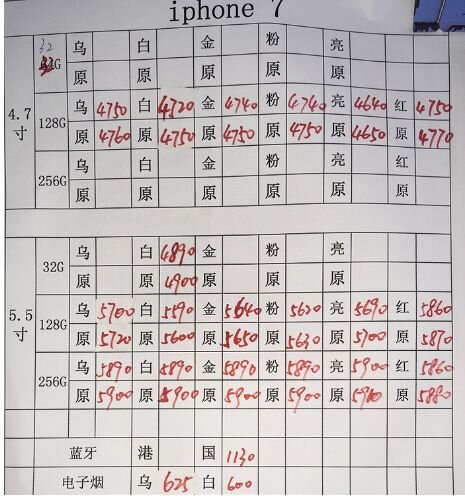 iphone 7
32
乌 白 金 粉 亮
G
原 原 原 原 原
4.7寸
128G
乌 4750 白 4720 金 4740 粉 4740 亮 4640 红 4750
原 4760 原 4750 原 4750 原 4750 原 4650 原 4770
256G
乌 白 金 粉 亮 红
原 原 原 原 原 原
5.5寸
32G
乌 白 4890 金 粉 亮
原 原 4900 原 原 原
128G
乌 5700 白 5590 金 5640 粉 5620 亮 5690 红 5860
原 5720 原 5600 原 5650 原 5630 原 5700 原 5870
256G
乌 5890 白 5890 金 5890 粉 5890 亮 5900 红 5860
原 5900 原 5900 原 5900 原 5900 原 5910 原 5880
蓝牙 港 国 1130
电子烟 乌 625 白 600